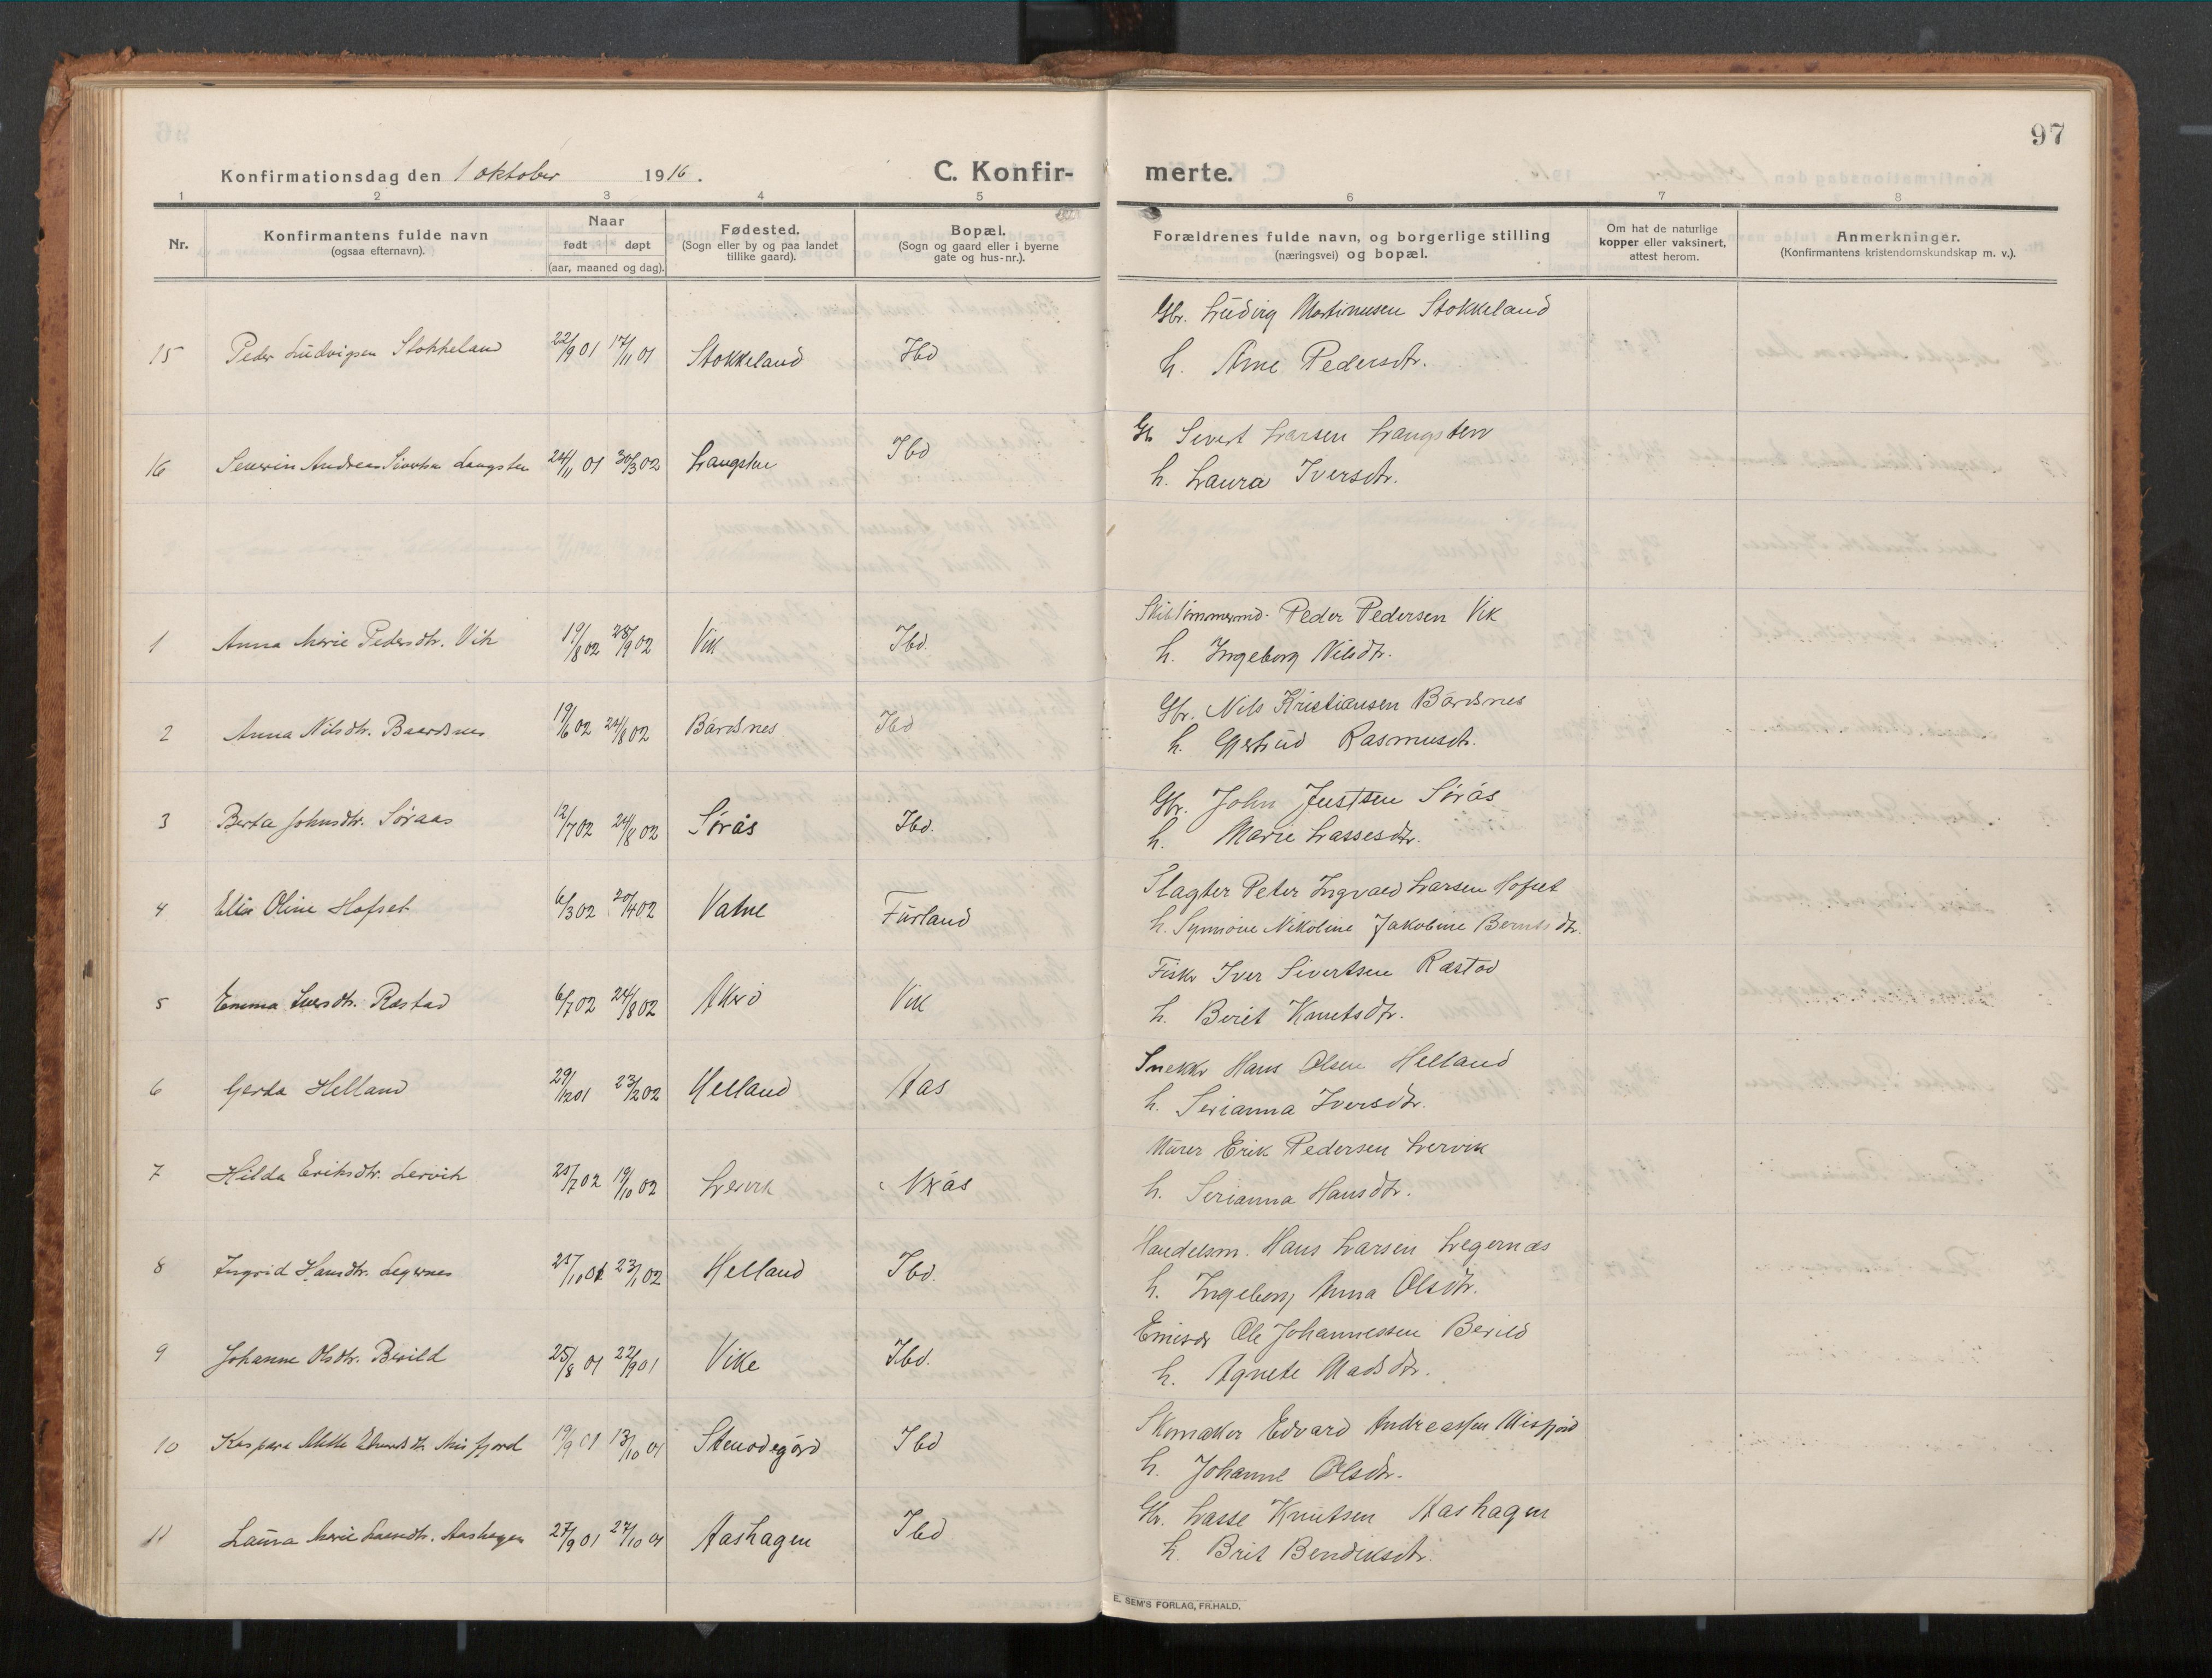 97
Konfirmationsdag den 1 oktober 1916.
C. Konfir-
merte.
1 2 3 4 5 6 7 8
Nr.
Konfirmantens fulde navn
(ogsaa efternavn).
Naar
født døpt
(aar, maaned og dag).
Fødested.
(Sogn eller by og paa landet
tillike gaard).
Bopæl.
(Sogn og gaard eller i byerne
gate og hus-nr.).
Forældrenes fulde navn, og borgerlige stilling
(næringsvei) og bopæl.
Om hat de naturlige
kopper eller vaksinert,
attest herom.
Anmerkninger.
(Konfirmantens kristendomskundskap m. v.).
Gbr. Ludvig Martinusen Stokkeland
15 Peder Ludvigsen Stokkeland 22/9 01 17/11 01 Stokkeland Ibd
h. Ane Pedersdtr.
Gb Sivert Larsen Langsten
16 Severin Andreas Sivertsen Langsten 24/11 01 30/3 02 Langsten Ibd
h. Laura Iversdtr.
Skibstømmermd. Peder Pedersen Vik
1 Anna Marie Pedersdtr. Vik 19/8 02 28/9 02 Vik Ibd.
h. Ingeborg Nilsdtr.
Gbr. Nils Kristiansen Bårdsnes
2 Anna Nilsdtr. Baardsnes 19/6 02 24/8 02 Bårdsnes Ibd
h. Gjertrud Rasmusdtr.
Gbr. John Justsen Sørås
3 Berta Johnsdtr. Søraas 12/7 02 24/8 02 Sørås Ibd.
h. Marie Lassesdtr.
Slagter Peter Ingvald Larsen Hofset
4 Ella Oline Hofset 6/3 02 20/4 02 Vatne Furland
h. Synnøve Nikoline Jakobine Berntsdtr.
Fisker Iver Sivertsen Ræstad
5 Emma Iversdtr. Ræstad 6/7 02 24/8 02 Akerø Vik
h. Berit Knutsdtr.
Snekker Hans Olsen Helland
6 Gerda Helland 29/12 01 23/2 02 Helland Aas
h. Serianna Iversdtr.
Murer Erik Pedersen Lervik
7 Hilda Eriksdtr. Lervik 25/7 02 19/10 02 Lervik Nxås
h. Serianna Hansdtr.
Handelsm. Hans Larsen Legernæs
8 Ingrid Hansdtr. Legernes 25/10 01 23/1 02 Helland Ibd.
h. Ingeborg Anna Olsdtr.
Emisær Ole Johannessen Berild
9 Johanne Olsdtr. Berild 25/8 01 22/9 01 Vike Ibd.
h. Agnete Madsdtr.
Skomaker Edvard Andreassen Misfjord
10 Kaspara Mette Edvardsdtr Misfjord 19/9 01 13/10 01 Stenødegård Ibd
h. Johanne Olsdtr.
Gbr. Lasse Knutsen Aashagen
11 Laura Marie Lassesdtr. Aashagen 27/9 01 27/10 01 Aashagen Ibd
h. Brit Bendiksdtr.
E. SEM'S FORLAG, FR.HALD.